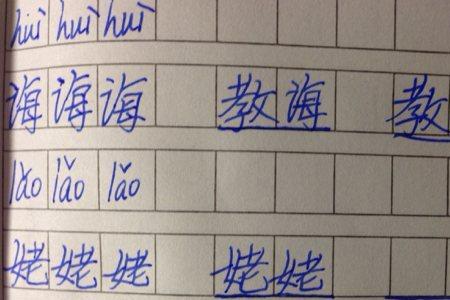 huì huì huì
诲 诲 诲 教诲 教
lǎo lǎo lǎo
姥 姥 姥 姥姥